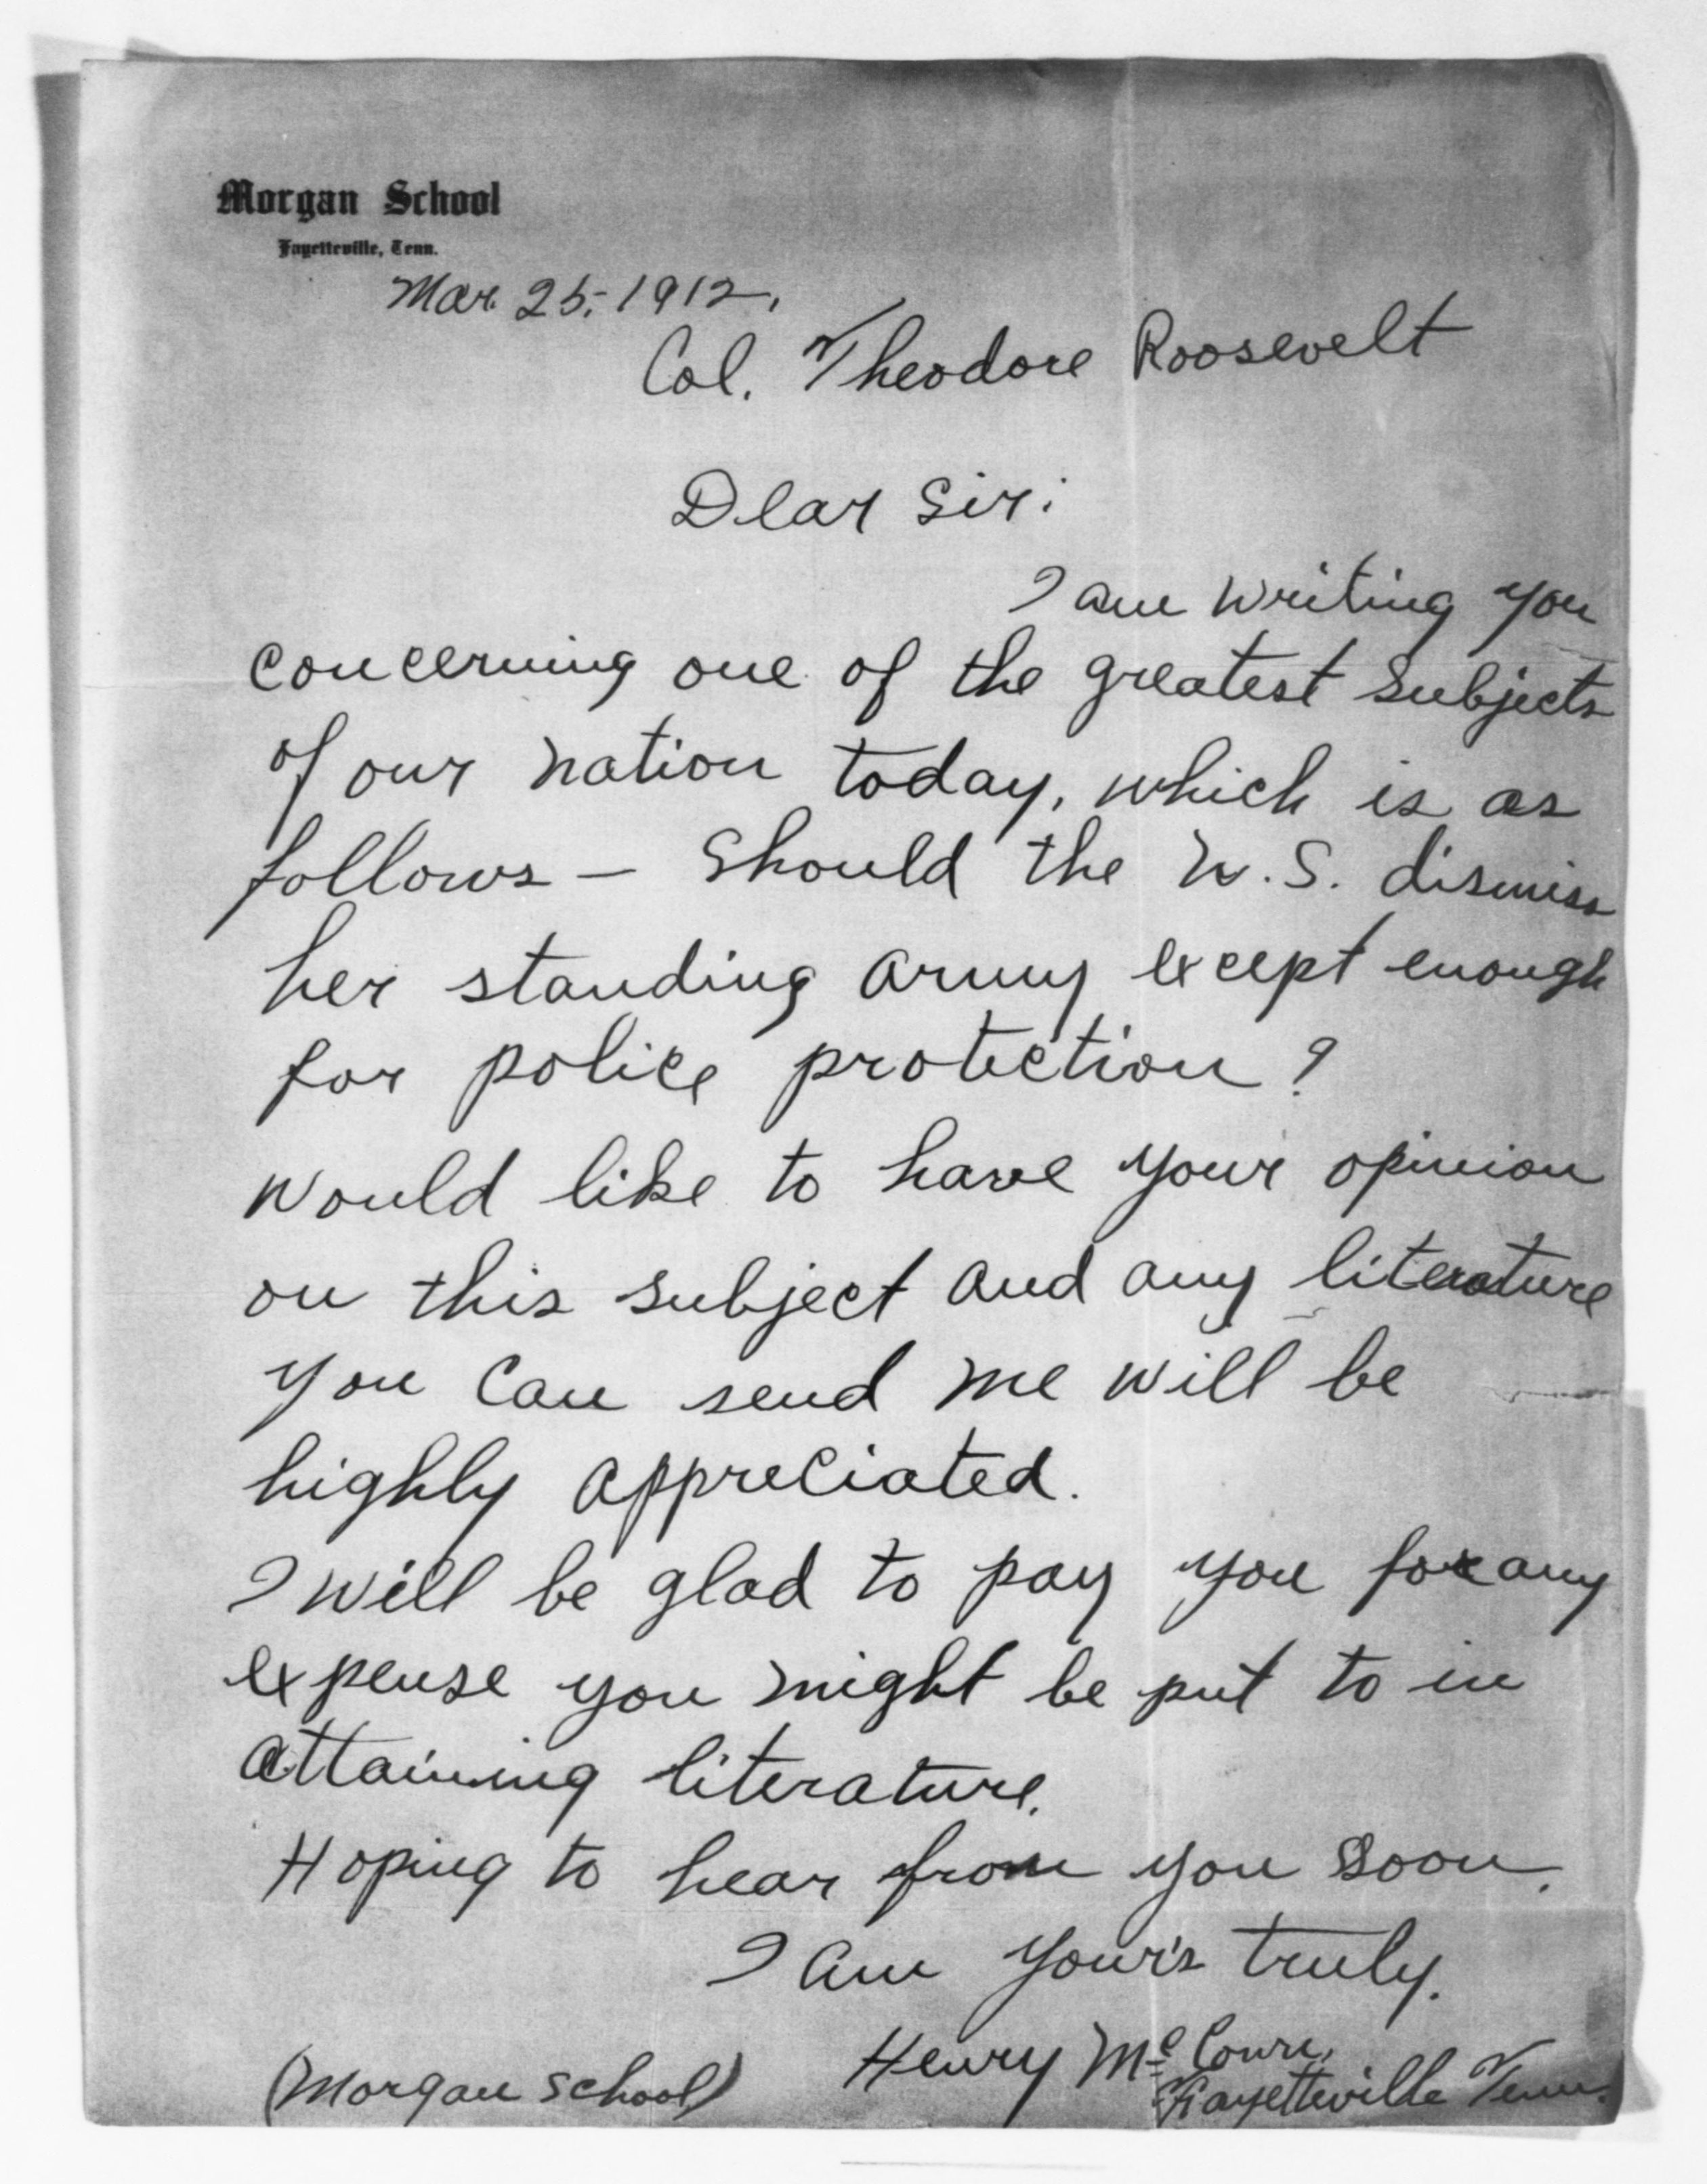 Morgan School
Fayetteville, Tenn.
Mar. 25, - 1912,
Col. Theodore Roosevelt
Dear Sir:
I am writing you
concerning one of the greatest subjects
of our nation today, which is as
follows — Should the U.S. dismiss
her standing army except enough
for police protection?
Would like to have your opinion
on this subject and any literature
you can send me will be
highly appreciated.
I will be glad to pay you for any
expense you might be put to in
attaining literature.
Hoping to hear from you soon.
I am your's truly.
Henry McCown,
(Morgan School) Fayetteville Tenn.